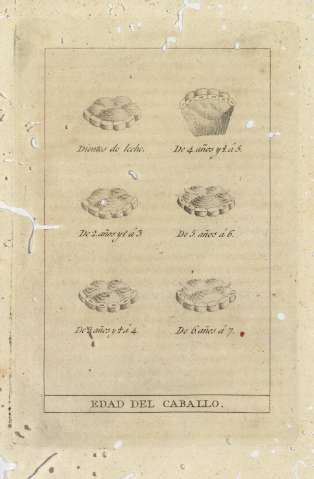 Dientes de leche.
De 4 años y ½ á 5.
De 2 años y ½ á 3
De 5 años á 6.
De 3 años y ½ á 4
De 6 años á 7.
EDAD DEL CABALLO.